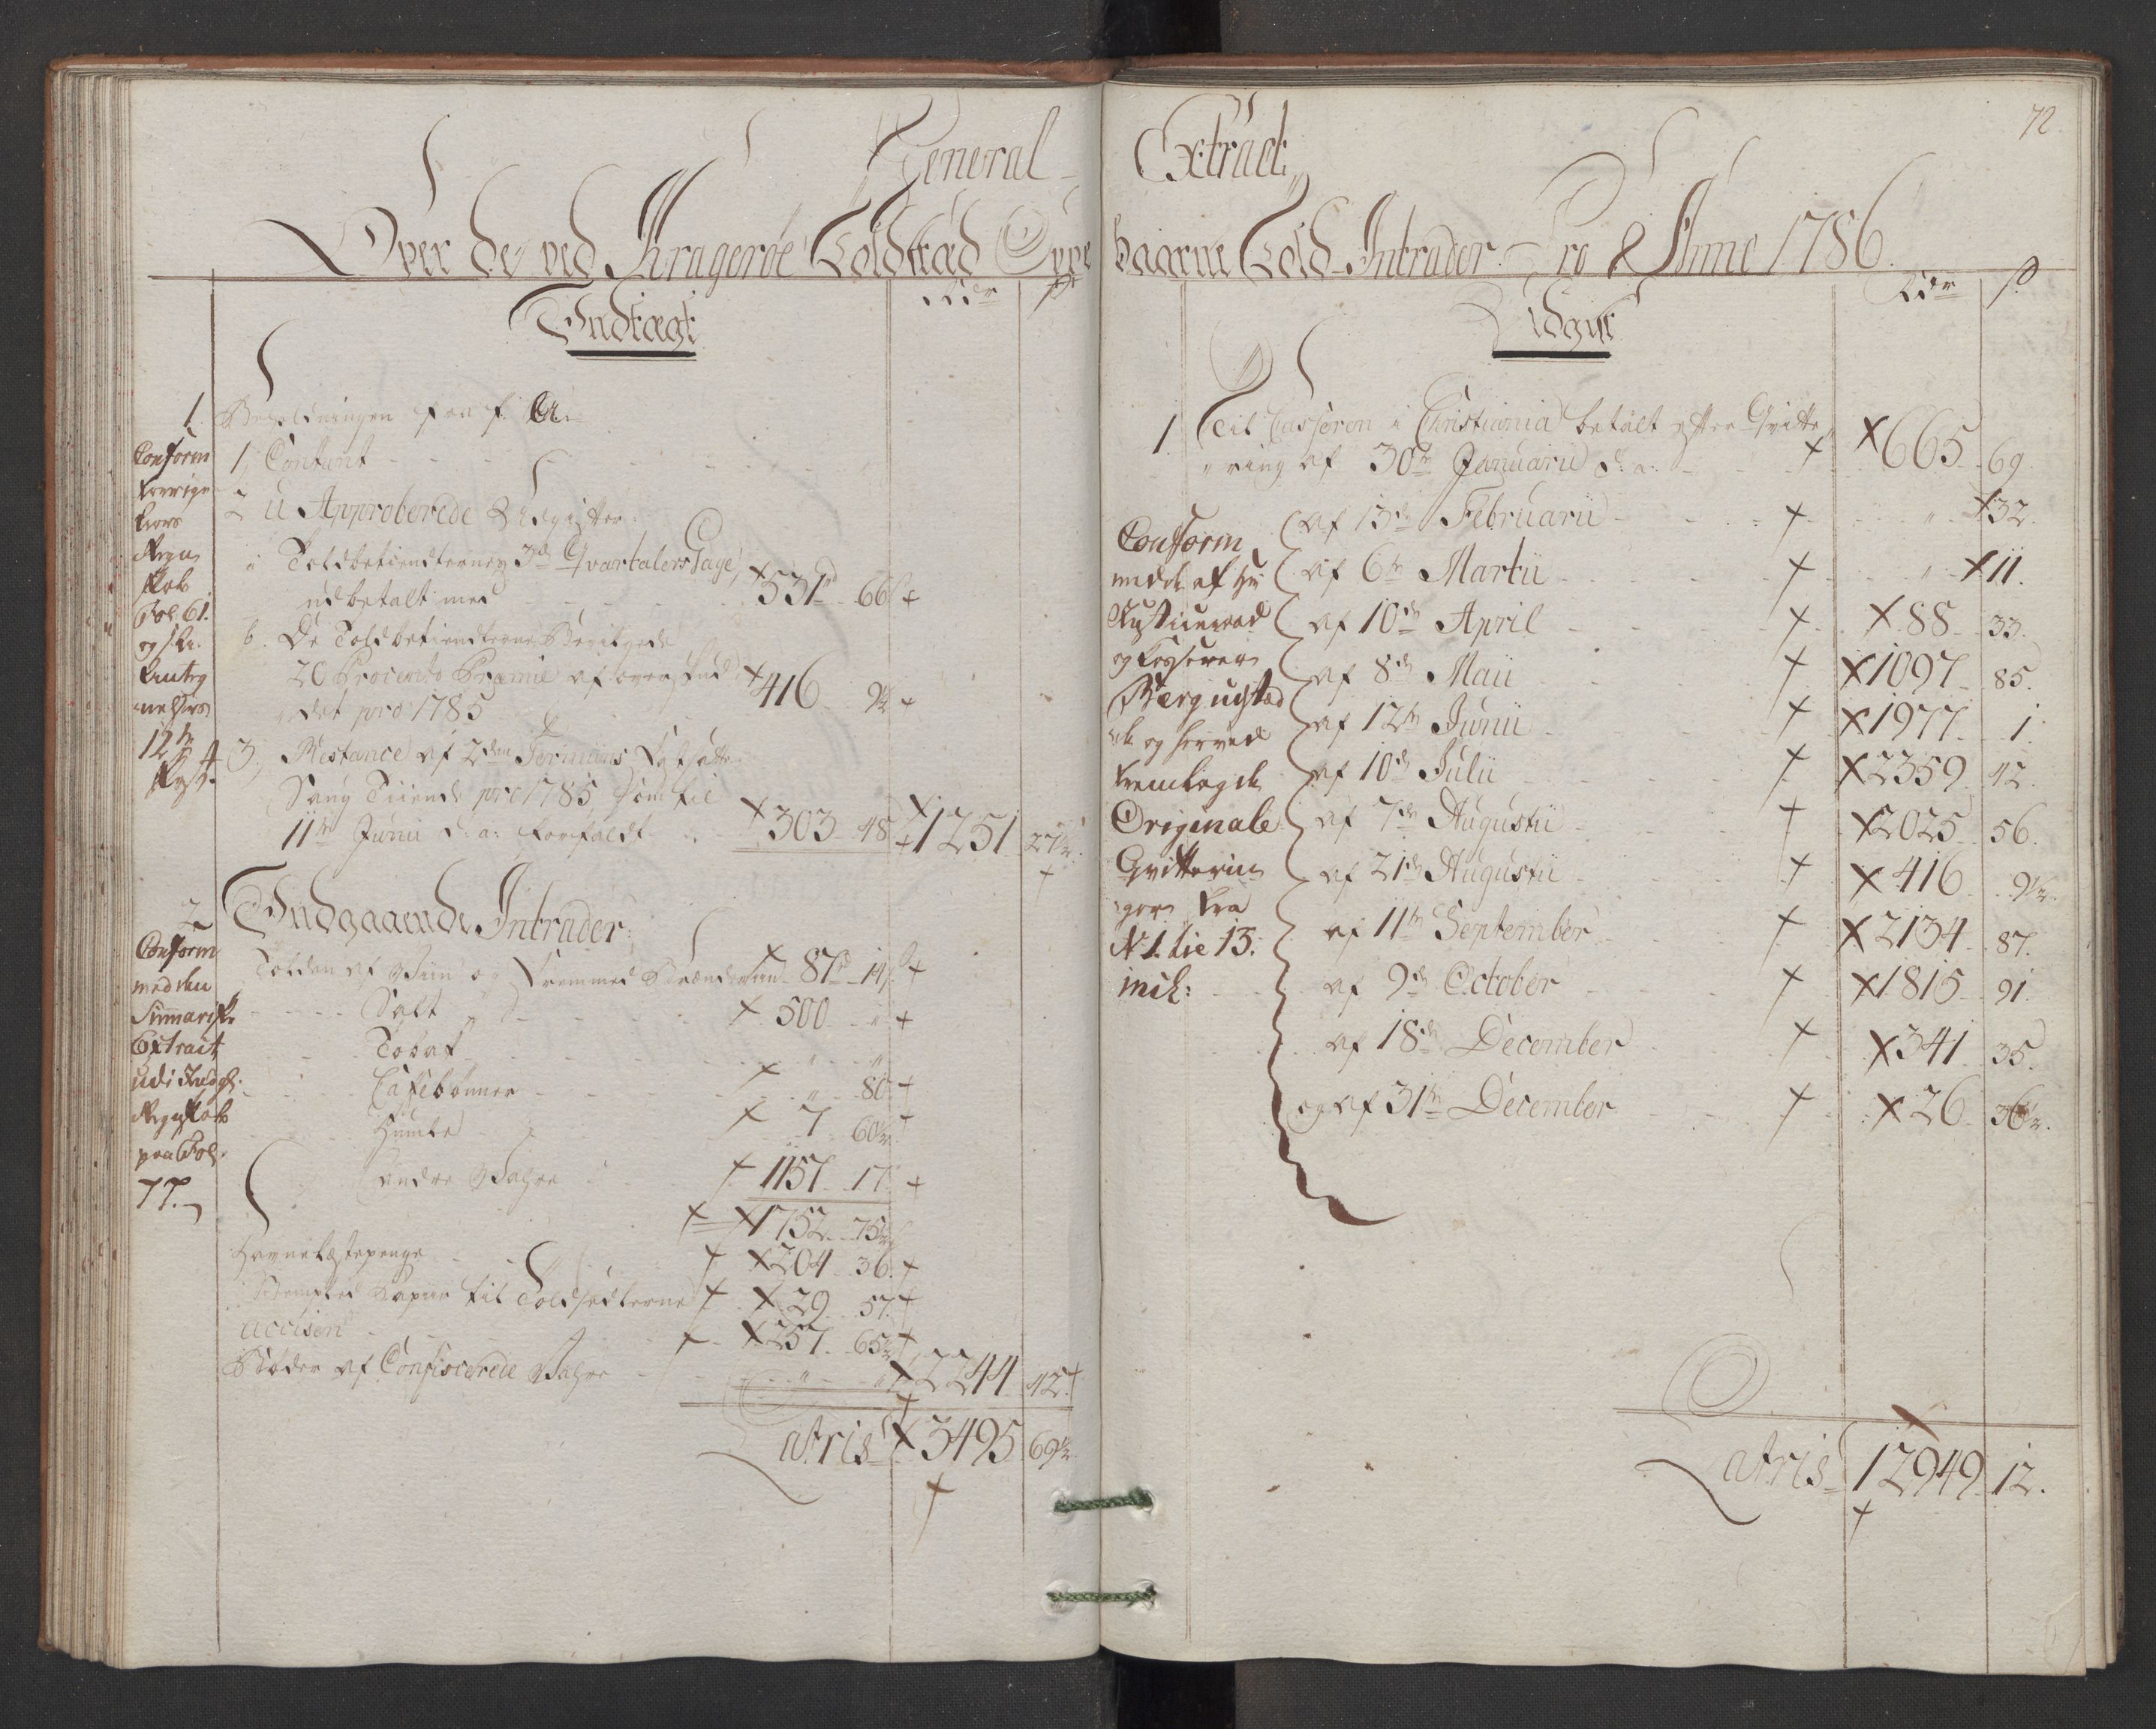 General-
Over de ved Kragerøe Toldstæd Oppe
Rdr ß
Indtægt
1 Beholdningen fra f. A:
1, Contant
2 U Approberede Udgifter
a Toldbetiendternes 3de Qvartalers Gage,
udbetalt med 531rd 66ß
b. De Toldbetiendterne Bevilgede
20 Procento Præmie af overskud,,
,,det pro 1785 416 9½
3, Restance af 2den Termins Fastsatte
Saug Tiiende pro 1785 som til
11te Junii d: a: forfaldt 303 48 1251 27½
Conform
forrige
Aars
Regn
skab
Fol: 61.
og
12te
2 Indgaaende Intrader:
Tolden af Viin og Fremmed Brændeviin 87rd 14ß
Salt 500 "
Tobak " "
Caffebønner " 80
Humle 7 60½
andre Vahre 1157 17
1752 75½
Havnelastepenge 204 36
Stemplet Papiir til Toldsedlerne 29 57
Accisen 257 65½
Bøder af Confiscerede Vahre " " 2244 42
Latris 3495 69½
Conform
med den
Summariske
Extract
udi Indg:
Regnskab
paa Fol:
77.
72
Extract,
baarne Told-Intrader Pro Anno 1786.
Rdr ß
Udgift
1 Til Casseren i Christiania betalt efter Qvitte,,
,,ring af 30te Januarii d: a: 665 69
af 13de Februarii " 32.
af 6te Martii " 11.
af 10de April 88 33.
af 8de Maii 1097 85.
af 12te Junii 1977 1.
af 10de Julii 2359 42.
af 7de Augustii 2025 56.
af 21de Augustii 416 9½.
af 11te September 2134 87.
af 9de October 1815 91.
af 18de December 341 35.
og af 31te December 26 36½.
Conform
med de af Hr
Justiceraad
og Casserer
Bærgugstæd
og herved
fremlagde
Originale
Qvitterin
ger fra
N 1. til 13.
incl:
Latris 12949 12.